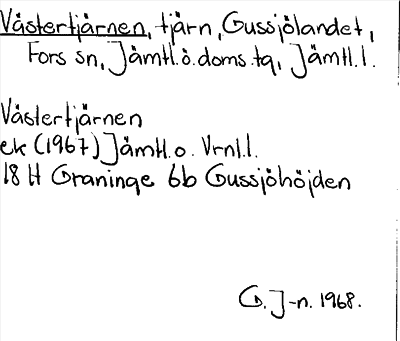 Västertjärnen, tjärn, Gussjölandet,
Fors sn, Jämtl.ö.doms.tg, Jämtl.l.
Västertjärnen
ek (1967) Jämtl.o. Vrnl.l.
18 H Graninge 6b Gussjöhöjden
G. J-n. 1968.